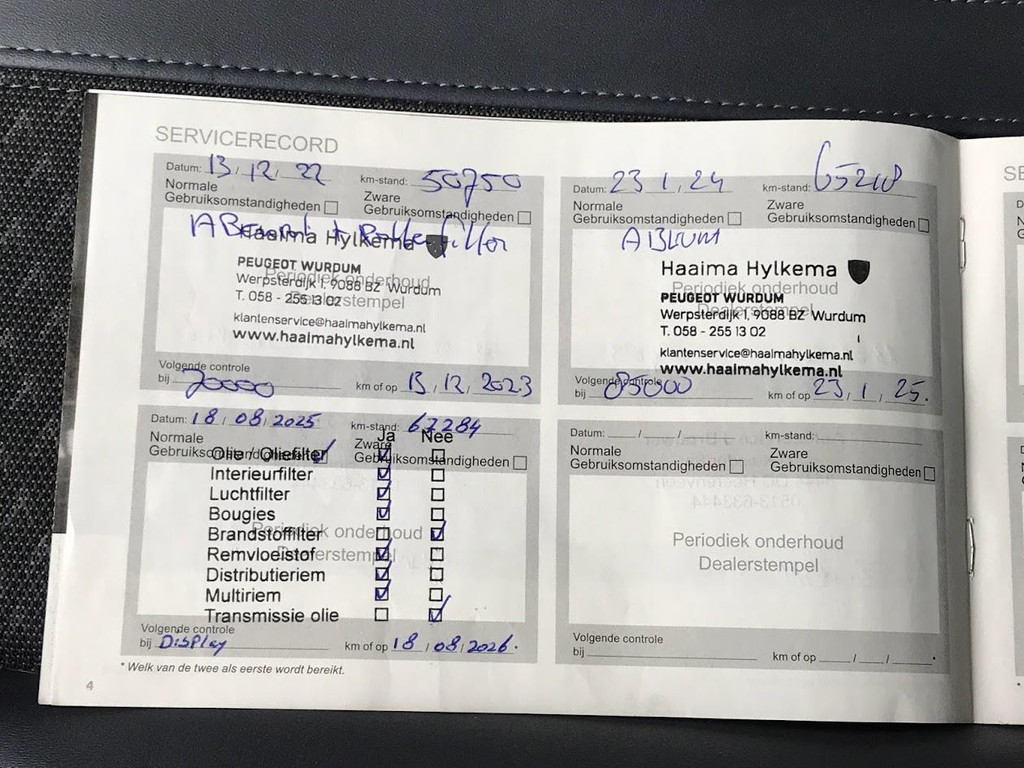 SERVICERECORD
Datum: 13 / 12 / 22 km-stand: 50750
Normale Gebruiksomstandigheden Zware Gebruiksomstandigheden
+ filter
Haaima Hylkema
PEUGEOT WURDUM
Periodiek onderhoud
Werpsterdijk 1, 9088 BZ Wurdum
Dealerstempel
T. 058 - 255 13 02
klantenservice@haaimahylkema.nl
www.haaimahylkema.nl
Volgende controle
bij 70000 km of op 13, 12, 2023
Datum: 23 1, 24 km-stand:
Normale Gebruiksomstandigheden Zware Gebruiksomstandigheden
Haaima Hylkema
Periodiek onderhoud
PEUGEOT WURDUM
Dealerstempel
Werpsterdijk 1, 9088 BZ Wurdum
T. 058 - 255 13 02
klantenservice@haaimahylkema.nl
www.haaimahylkema.nl
Volgende controle
bij 85000 km of op 23, 1, 25.
Datum: 18 / 08 / 2025 km-stand: 67284
Ja Nee
Normale Gebruiksomstandigheden Zware Gebruiksomstandigheden
Olie / Oliefilter
Interieurfilter
Luchtfilter
Bougies
Periodiek onderhoud
Brandstoffilter
Dealerstempel
Remvloeistof
Distributieriem
Multiriem
Transmissie olie
Volgende controle
bij Display km of op 18 / 08 / 2026.
Datum: / / km-stand:
Normale Gebruiksomstandigheden Zware Gebruiksomstandigheden
Periodiek onderhoud
Dealerstempel
Volgende controle
bij km of op / / *
* Welk van de twee als eerste wordt bereikt.
4